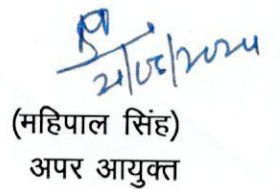 (महिपाल सिंह)
अपर आयुक्त